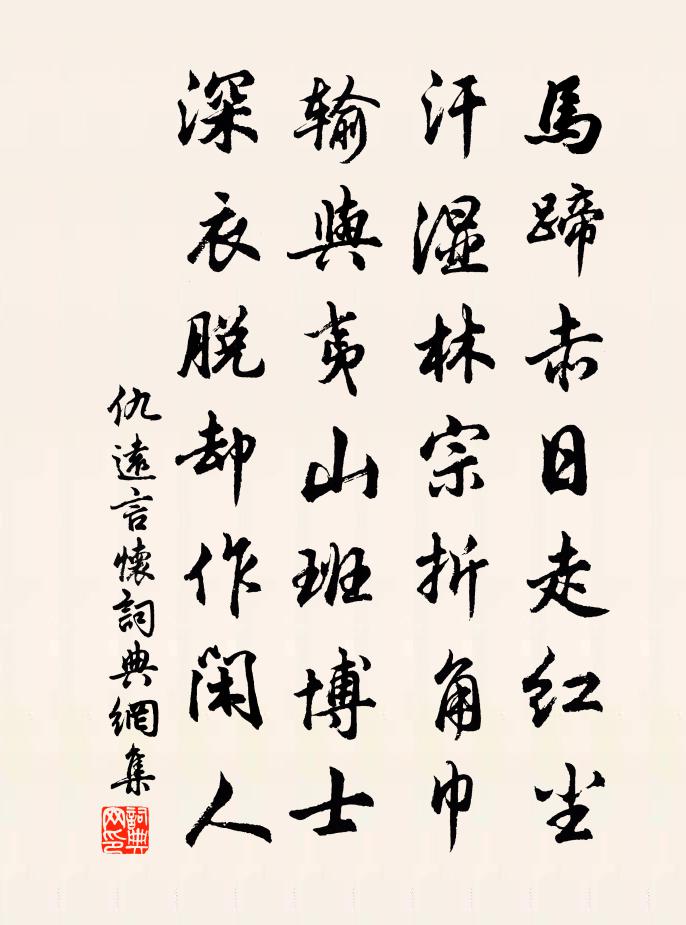 馬蹄赤日走红尘
汗湿林宗折角巾
输與夷山班博士
深衣脱却作閑人
仇遠言懷詞典網集
詞典網印